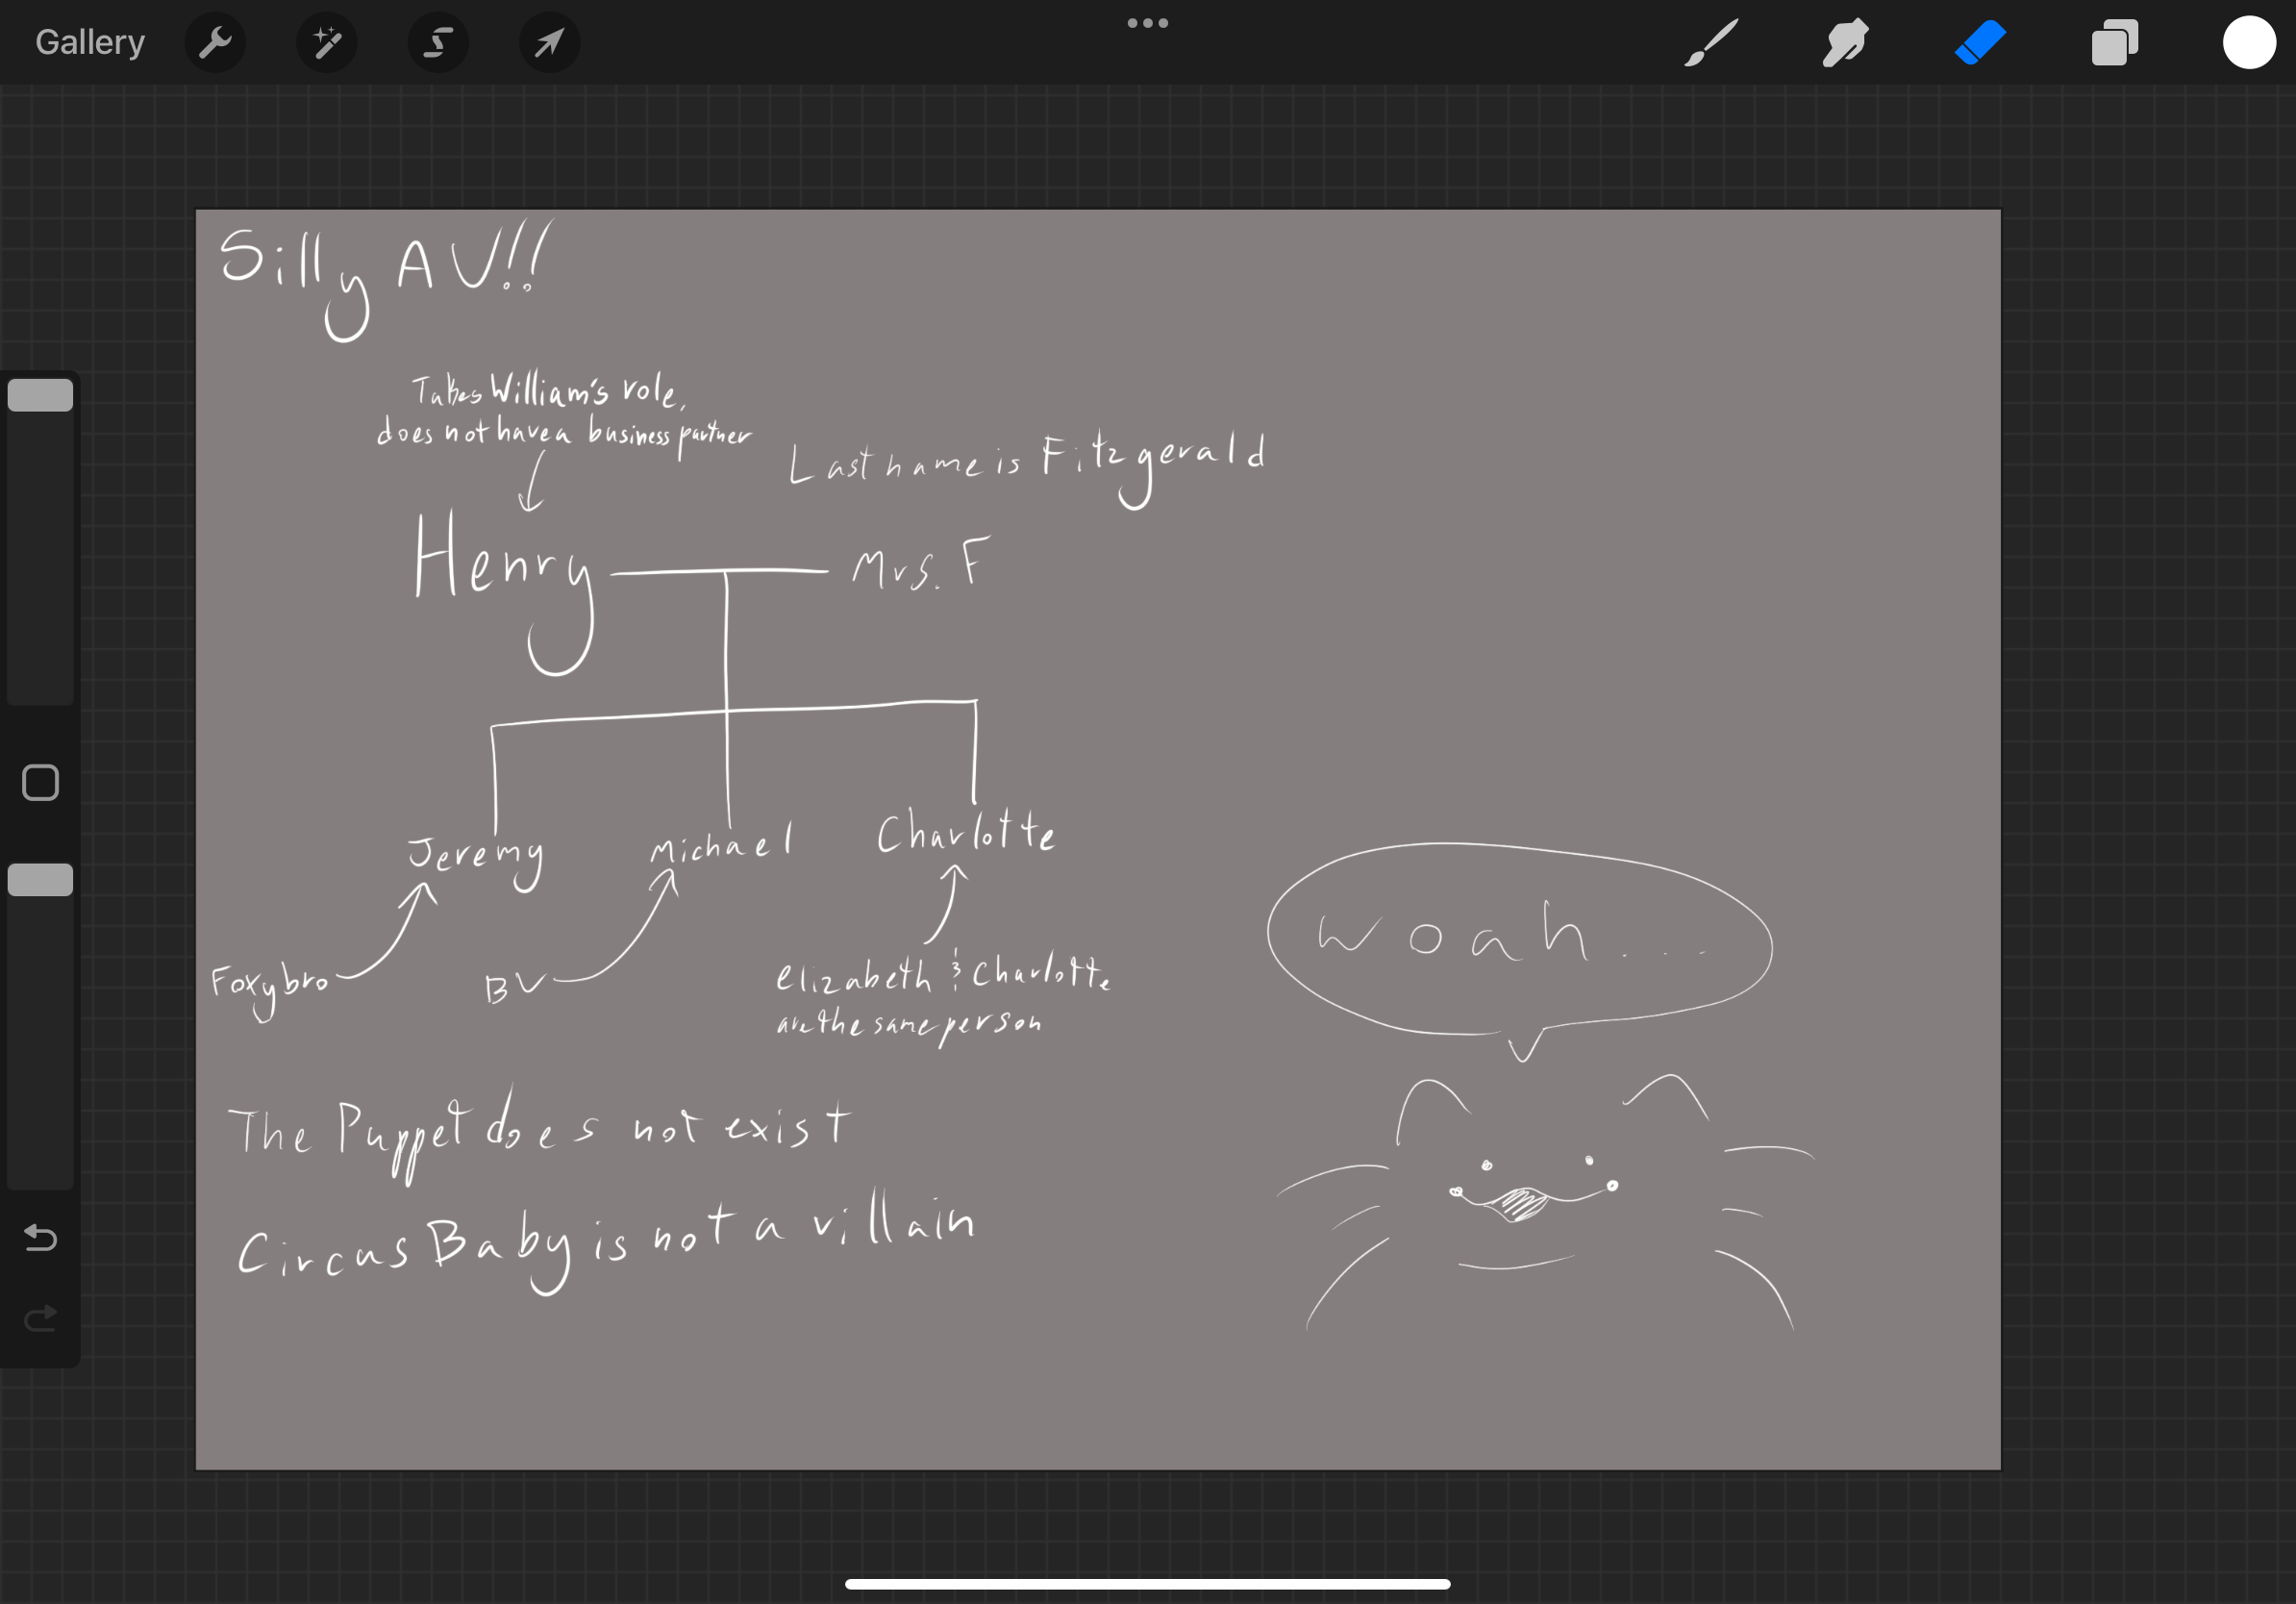 Gallery
Silly AU!!
Takes William's role,
does not have a business partner
Last name is Fitzgerald
Henry
Mrs. F
Jeremy
Michael
Charlotte
Foxybro
BV
Elizabeth & Charlotte
are the same person
woah....
The Puppet does not exist
Circus Baby is not a villain